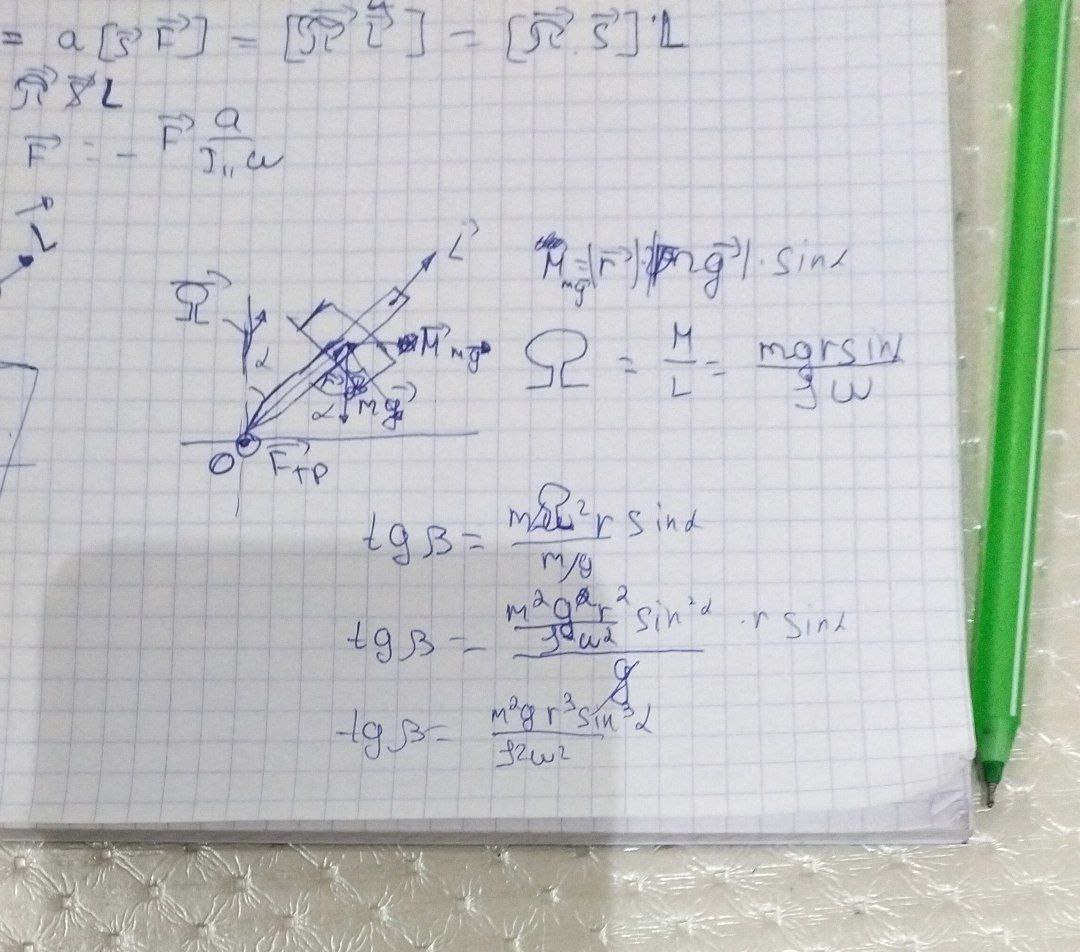 = a [s⃗ F⃗] = [Ω⃗ L⃗] = [Ω⃗ s⃗]·L
Ω⃗ L
F⃗ = - F⃗ a/(I₁₁ ω)
L
Ω⃗
L⃗
α
M⃗ mg⃗
r⃗
α
mg⃗
O
F⃗тр
M mg⃗ = |r⃗|·|mg⃗|·sinα
Ω = M/L = mgr sinα/(J ω)
tgβ = mΩ²r sinα/(mg)
tgβ = (m²g²r²/(J²ω²) sin²α · r sinα)/g
tgβ = m²g r³ sin³α/(J²ω²)